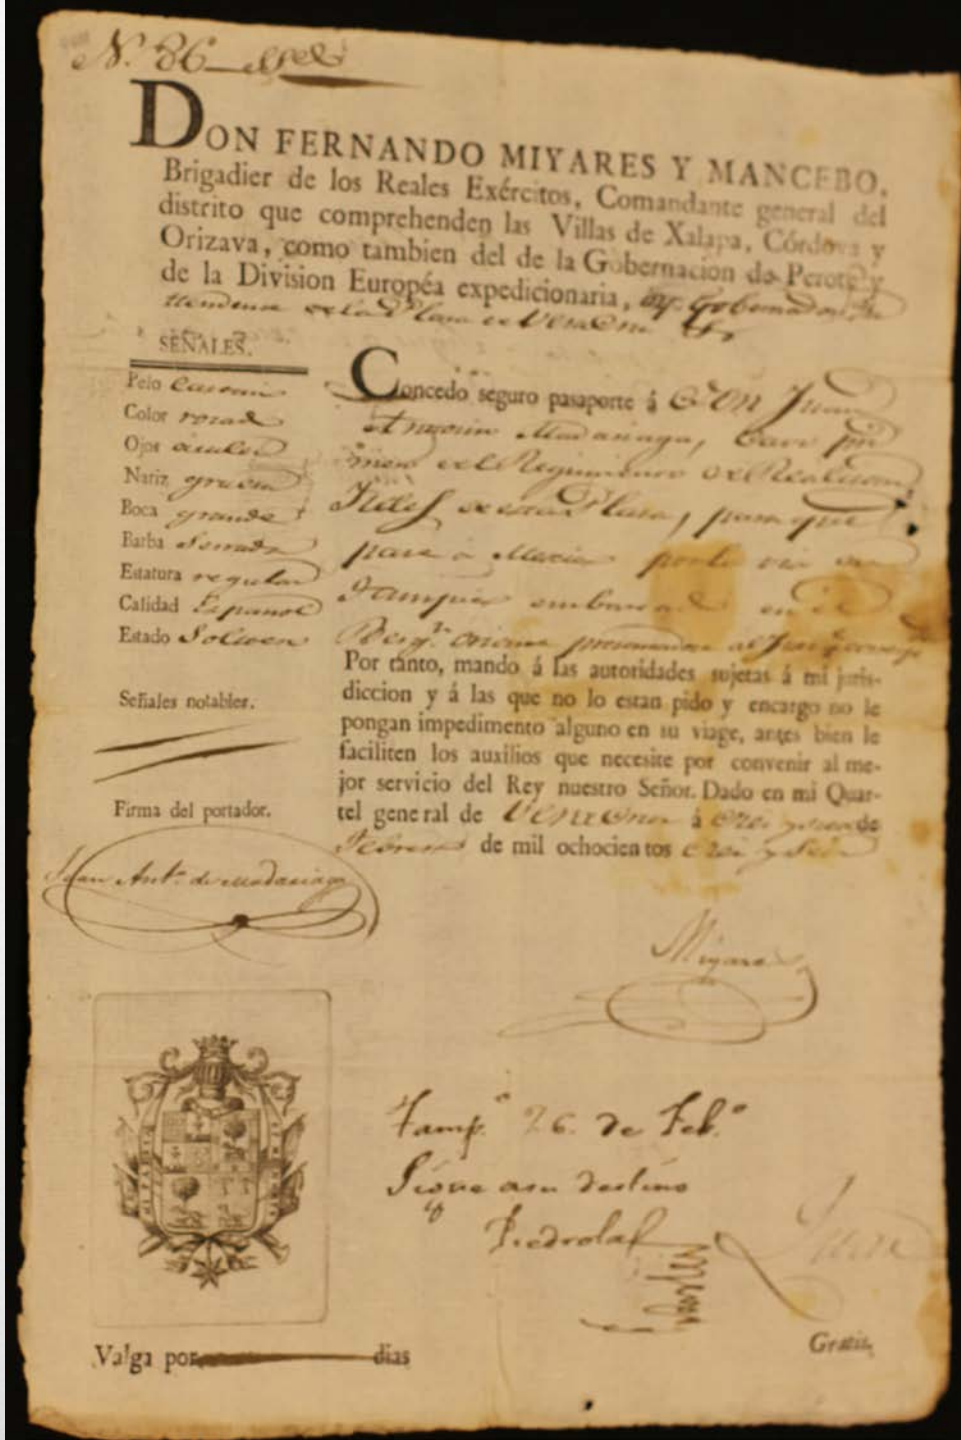 N. 36
DON FERNANDO MIYARES Y MANCEBO,
Brigadier de los Reales Exércitos, Comandante general del
distrito que comprehenden las Villas de Xalapa, Córdova y
Orizava, como tambien del de la Gobernacion de Perote y
de la Division Européa expedicionaria, y Gobernador In
tendente de la Plaza de Veracruz
SEÑALES.
Pelo
Color rosad
Ojos azules
Nariz gruesa
Boca grande
Barba Serrada
Estatura regular
Calidad Español
Estado Soltero
Señales notables.
Firma del portador.
Juan Ant.º de Madariaga
Concedo seguro pasaporte á Don Juan
Antonio Madariaga, Cavo pri
mero del Regimiento de
Fieles de esta Plaza, para que
pase á Mexico por la via de
Tampico embarcado en el
Berg.n
Por tanto, mando á las autoridades sujetas á mi juris-
diccion y á las que no lo estan pido y encargo no le
pongan impedimento alguno en su viage, antes bien le
faciliten los auxilios que necesite por convenir al me-
jor servicio del Rey nuestro Señor. Dado en mi Quar-
tel general de Veracruz á de
Febrero de mil ochocientos diez y seis
Miyares
Tamp.º 26. de Feb.º
Sigue a su destino
Piedrolas
Valga por dias
Gratis.